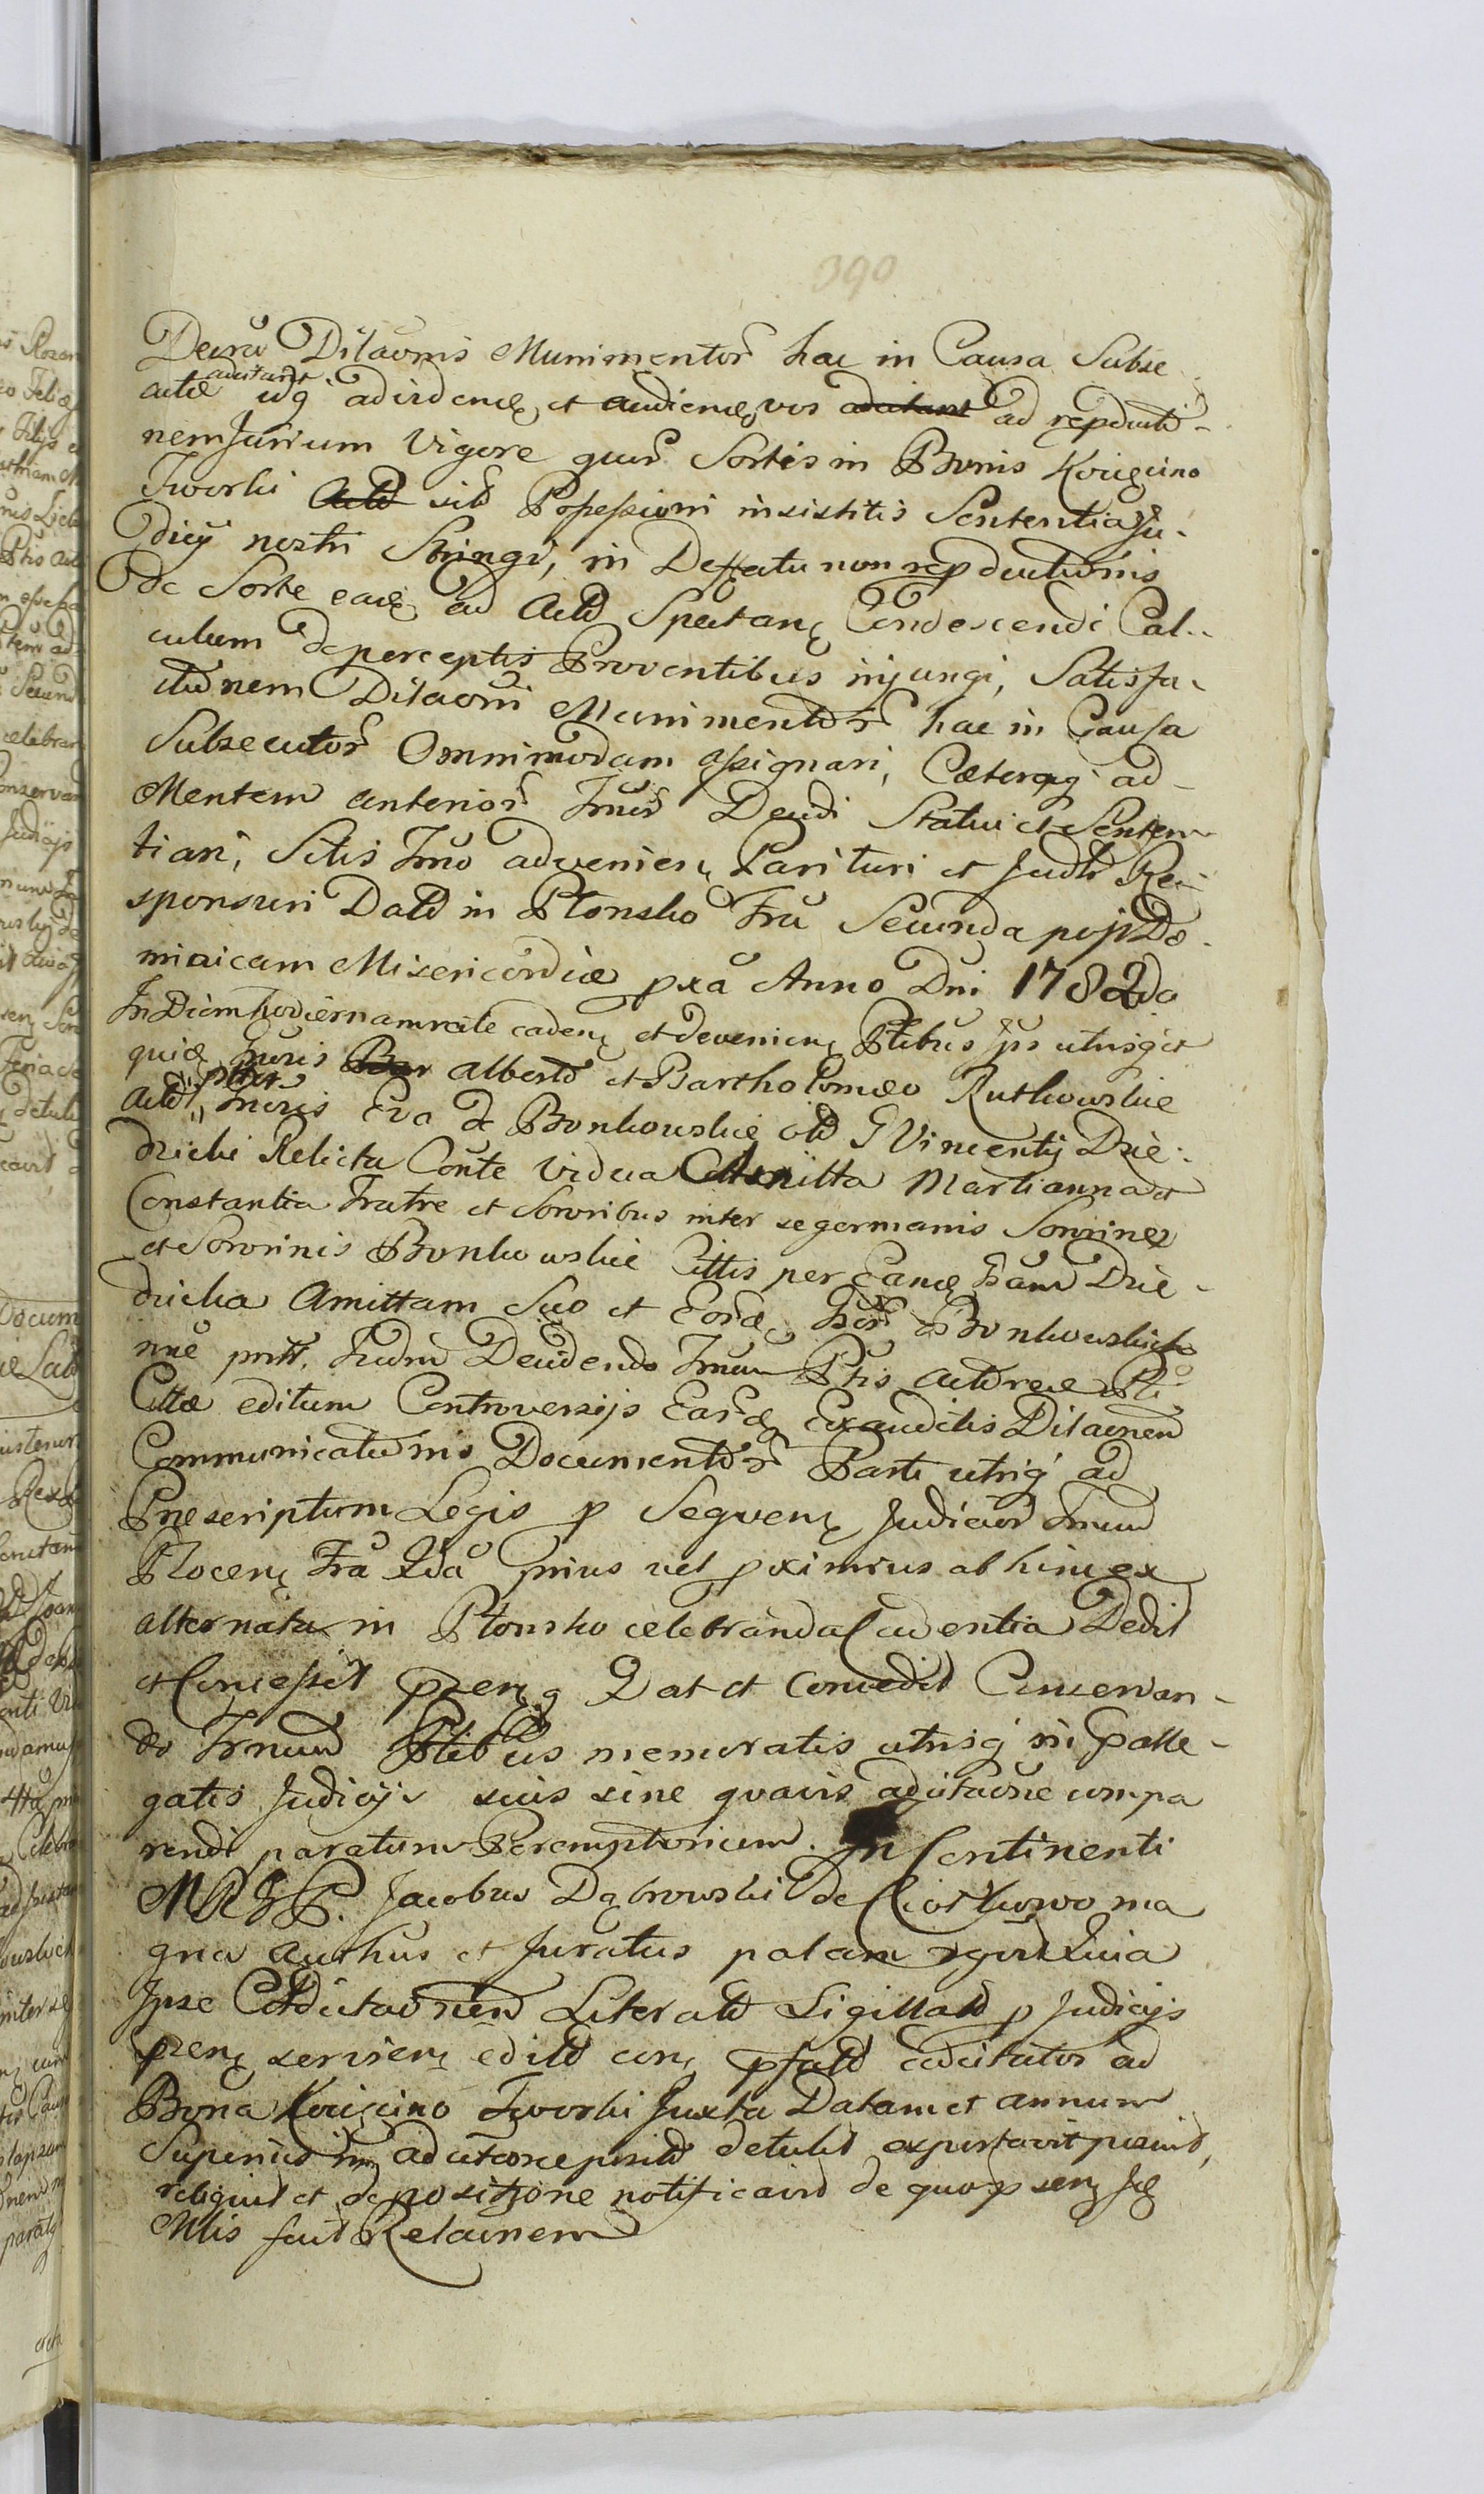 390
Decru Dilaonis Munimentor hac in Causa Subse
citant
cutæ idq ad videnḍ et audienḍ vos adcitant ad repducti-
nem Jurium Vigore quor Sortis in Bonis Koziczino
Tworki Actô sitô Possessioni insistitis Sententia Ju-
dicÿ nostri Stringi, in Deffectu non repductionis
de Sorte eadę ad Actô Spectanę Condescendi Cal-
culum de perceptis Proventibus injungi, Satisfa-
ctionem Dilaoni Munimentor hac in Causa
Subsecutor Omnimodam assignari, Cæteraq ad
Mentem anterior Trmi Decidi Statui et Senten-
tiari, Sitis Trno advenien Parituri et Judlr Re-
sponsuri Datô in Płonsko Fria Secunda post Do-
minicam Misericordiæ pxa Anno Dni 1782do
In Diem hodiernam rcite cadenę et devenienę Ptibus Jps utrisq et
quide Gnris Bar Albertô et Bartholomæo Rutkowskie
Actô Gnris Eva de Bonkowskie olô G Vincentÿ Dzie-
dzicki Relicta Conte Vidua Amitta Martianna et
Constantia Fratre et Sororibus inter se germanis Sororinez
et Sororinis Bonkowskie Cittis per Eandę Gsam Dzie-
dzicka Amittam Suo et Eorde Gsor Bonkowskich
nne pntt. Judm Decidendo Trnum Ptis Actoreæ Pti
Cittæ editum Controversijs Earde Exauditis Dilaonem
Communicationis Documentor Parti utriq ad
Præscriptum Legis p Seqvenę Judicior Trnum
Płocenę Fria 2da prius vel pximius ab hinc ex
alternata in Płonsko celebranda Cadentia Dedit
et Concessit pzenę q Dat et Concedit Conservan-
do Trnum Ptibus memoratis utrisq in palle-
gatis Judicijs suis sine qvavis adcitaone compa
rendi paratum Peremptorium. In Continenti
MRGP. Jacobus Dąbrowski de Ciołkowo ma
gna authus et Juratus palam rgovit Quia
Ipse Adcitaonem Literatô Sigillatô p Judicijs
pzenę servienę editô conę pfatô adcitator ad
Bona Koziczino Tworki Juxta Datam et annum
Superius in adcitaone positô detulit exportavit posuit,
reliquit et de positione notificavit de quo p senę Se
Mlis fecit Relaonem